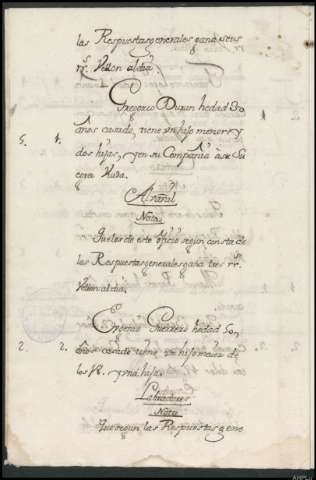 las Respuestas generales gana seis
rr.s Vellon al dia.
Gregorio Duran hedad 30
años casado, tiene un hijo menor y
5. 4. dos hijas, y en su Compañia à su Sue
gra Viuda.
Alvañil
Nota
Que los de este oficio segun consta de
las Respuestas generales gana tres rr.s
Vellon al dia.
Eugenio Guerrero hedad 50,,
años casado tiene un hijo maior de
2. 2. los 18. y una hija.
Labradores
Nota
Que segun las Respuestas gene